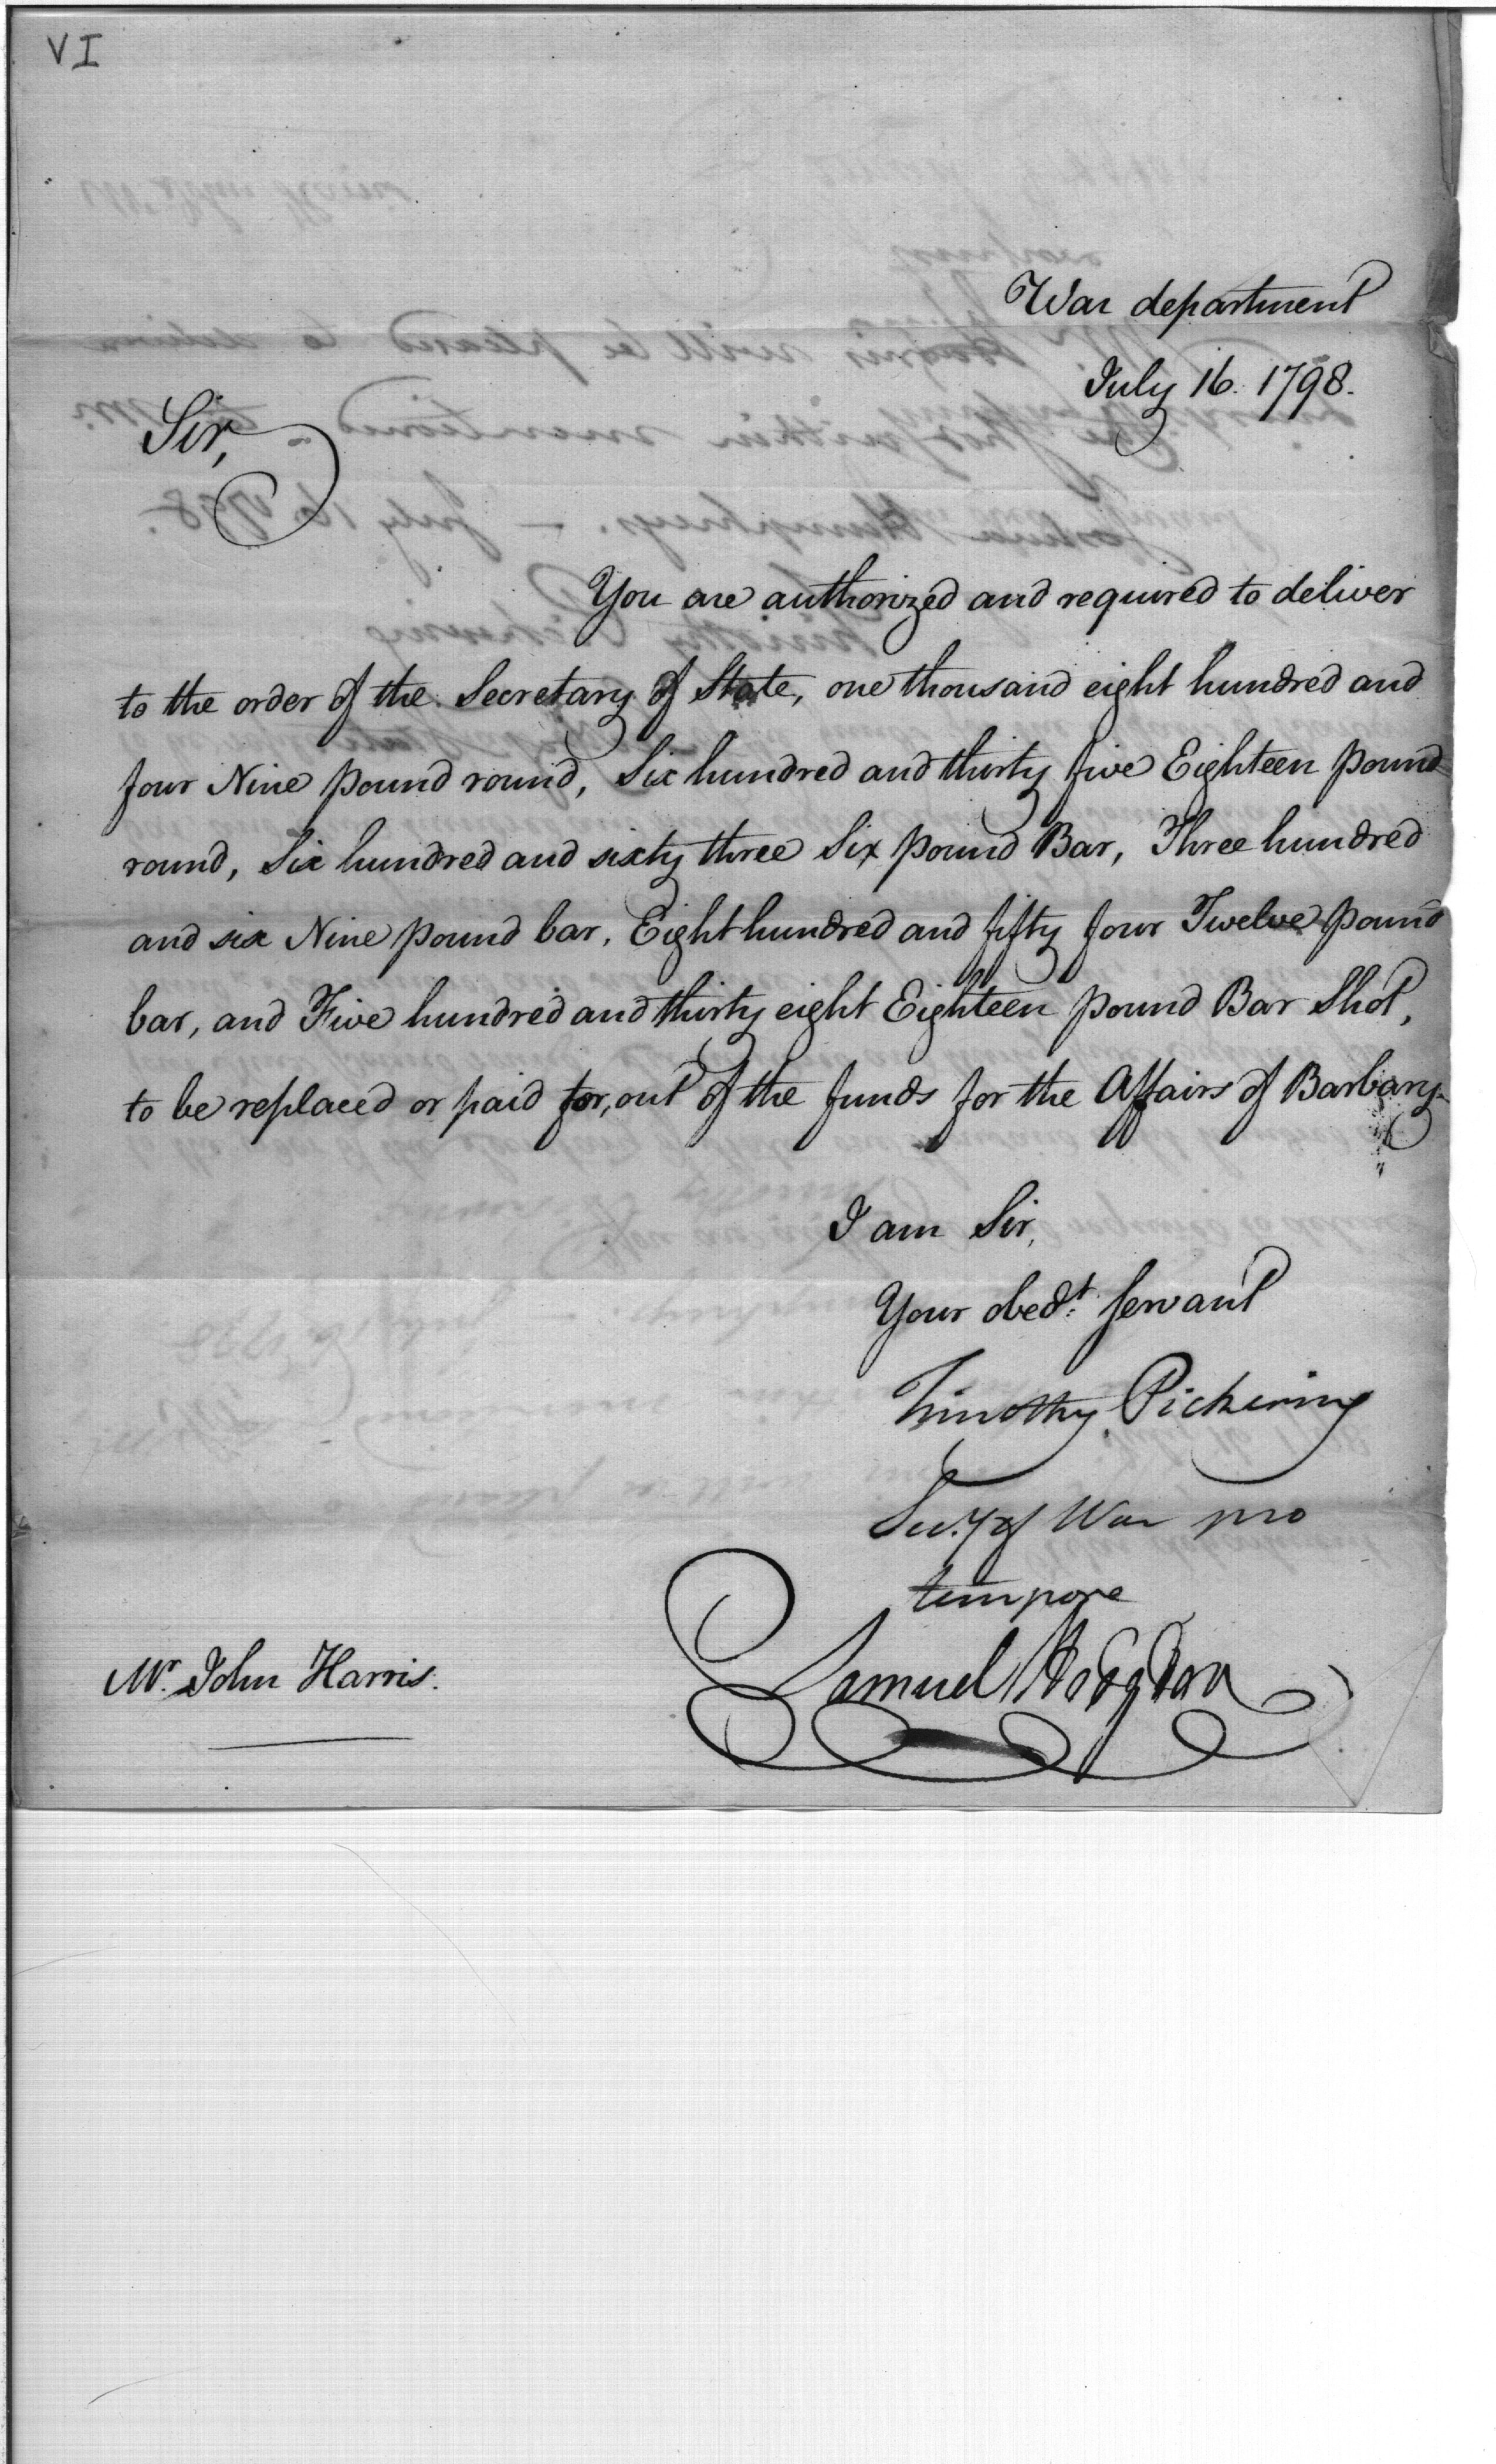 VI
War department
July 16. 1798.
Sir,
You are authorized and required to deliver
to the order of the Secretary of State, one thousand eight hundred and
four Nine pound round, Six hundred and thirty five Eighteen pound
round, Six hundred and sixty three Six pound Bar, Three hundred
and six Nine pound bar, Eight hundred and fifty four Twelve pound
bar, and Five hundred and thirty eight Eighteen pound Bar Shot,
to be replaced or paid for, out of the funds for the Affairs of Barbary.
I am Sir,
Your obedt. servant
Timothy Pickering
Secy of War pro
tempore
Mr. John Harris.
Samuel Hodgdon